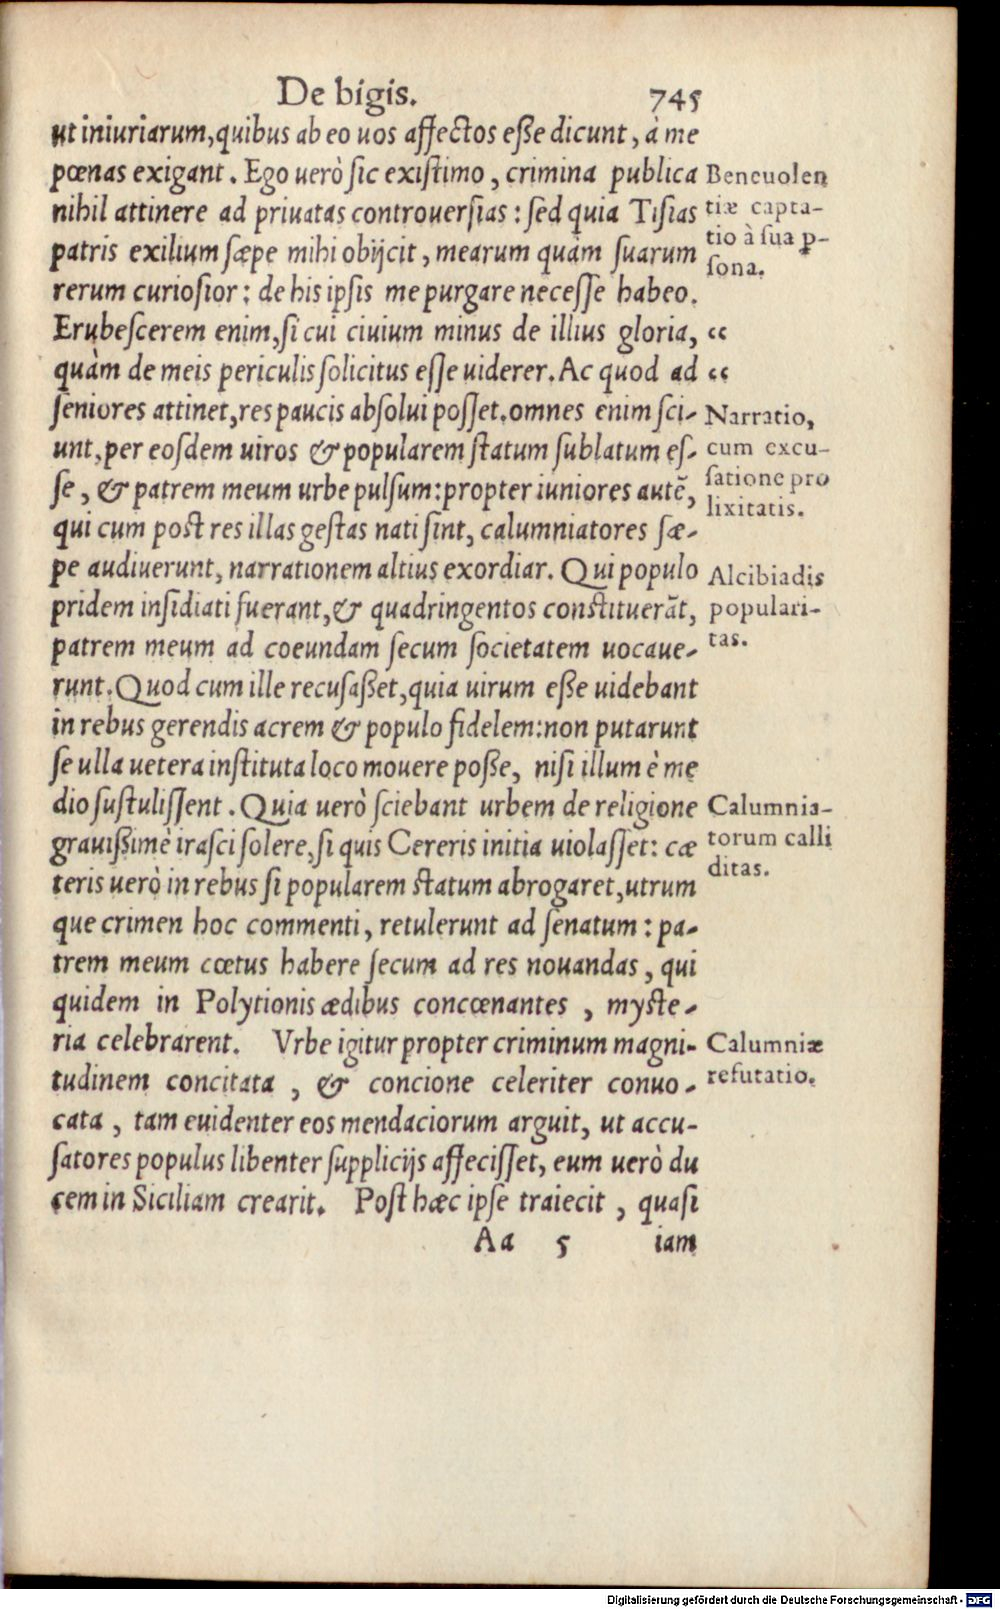 De bigis. 745
ut iniuriarum, quibus ab eo uos affectos eße dicunt, à me
pœnas exigant. Ego uerò ſic exiſtimo, crimina publica
nihil attinere ad priuatas controuerſias: ſed quia Tiſias
patris exilium ſæpe mihi obijcit, mearum quàm ſuarum
rerum curioſior: de his ipſis me purgare neceſſe habeo.
Erubeſcerem enim, ſi cui ciuium minus de illius gloria,
quàm de meis periculis ſolicitus eſſe uiderer. Ac quod ad
ſeniores attinet, res paucis abſolui poſſet. omnes enim ſci-
unt, per eoſdem uiros & popularem ſtatum ſublatum eſ-
ſe, & patrem meum urbe pulſum: propter iuniores autẽ,
qui cum post res illas geſtas nati ſint, calumniatores ſæ-
pe audiuerunt, narrationem altius exordiar. Qui populo
pridem inſidiati fuerant, & quadringentos constituerãt,
patrem meum ad coeundam ſecum ſocietatem uocaue-
runt. Quod cum ille recuſaßet, quia uirum eße uidebant
in rebus gerendis acrem & populo fidelem: non putarunt
ſe ulla uetera inſtituta loco mouere poße, niſi illum è me
dio ſuſtuliſſent. Quia uerò ſciebant urbem de religione
grauißimè iraſci ſolere, ſi quis Cereris initia uiolaſſet: cæ
teris uerò in rebus ſi popularem ſtatum abrogaret, utrum
que crimen hoc commenti, retulerunt ad ſenatum: pa-
trem meum cœtus habere ſecum ad res nouandas, qui
quidem in Polytionis ædibus concœnantes, myſte-
ria celebrarent. Vrbe igitur propter criminum magni-
tudinem concitata, & concione celeriter conuo-
cata, tam euidenter eos mendaciorum arguit, ut accu-
ſatores populus libenter ſupplicijs affeciſſet, eum uerò du
cem in Siciliam crearit. Poſt hæc ipſe traiecit, quaſi
Aa 5 iam
Beneuolen
tiæ capta-
tio à ſua ꝑ-
ſona.
“
“
Narratio,
cum excu-
ſatione pro
lixitatis.
Alcibiadis
populari-
tas.
Calumnia-
torum calli
ditas.
Calumniæ
refutatio.
Digitalisierung gefördert durch die Deutsche Forschungsgemeinschaft - DFG